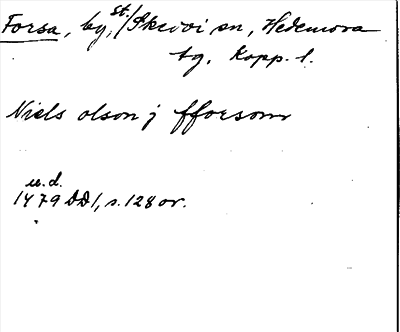 Forsa, by, st. Skedvi sn, Hedemora
tg, Kopp. l.
Niels olson j fforsom
u.d.
1479 DD1, s. 128 or.